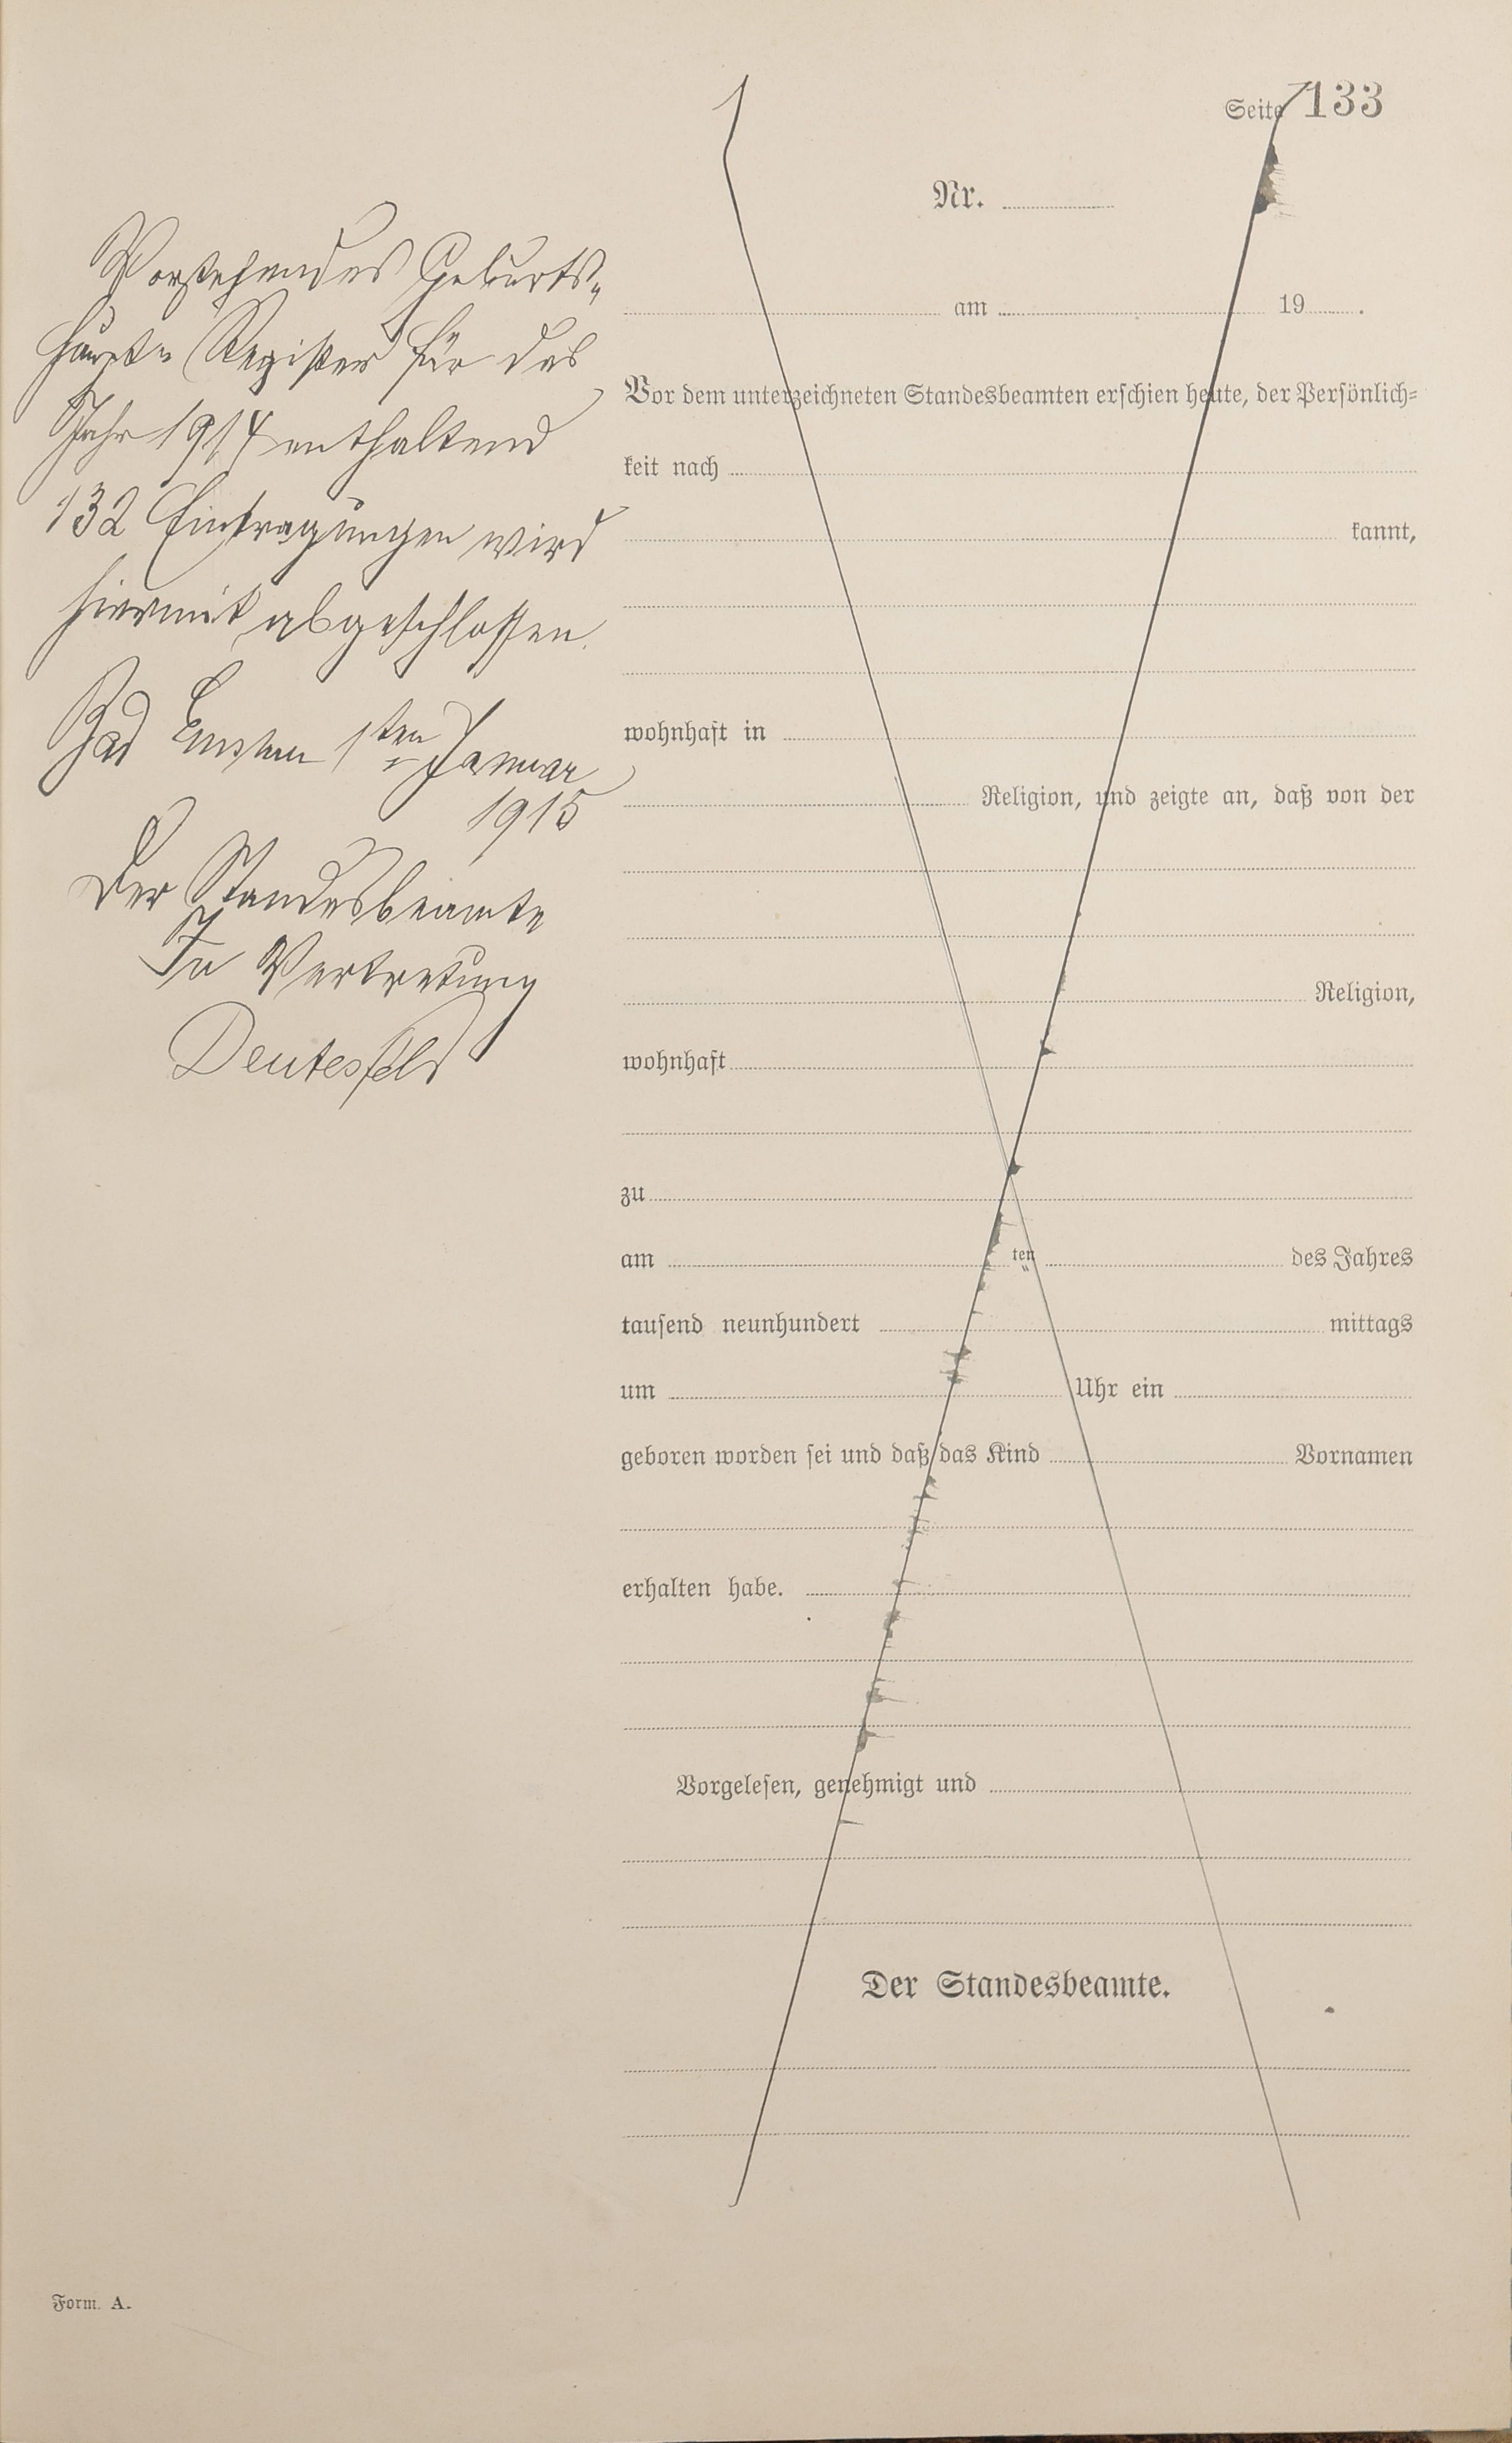 Seite 133
Nr.
Vorstehendes Geburts-
Haupt- Register für das
Jahr 1914 enthaltend
132 Eintragungen wird
hiermit abgeschlossen.
Bad Ems, den 1ten Januar
1915
Der Standesbeamte
In Vertretung
am 19 .
Vor dem unterzeichneten Standesbeamten erschien heute, der Persönlich-
keit nach
kannt,
wohnhaft in
Religion, und zeigte an, daß von der
Religion,
wohnhaft
zu
am ten des Jahres
tausend neunhundert mittags
um Uhr ein
geboren worden sei und daß das Kind Vornamen
erhalten habe.
Vorgelesen, genehmigt und
Der Standesbeamte.
Form. A.